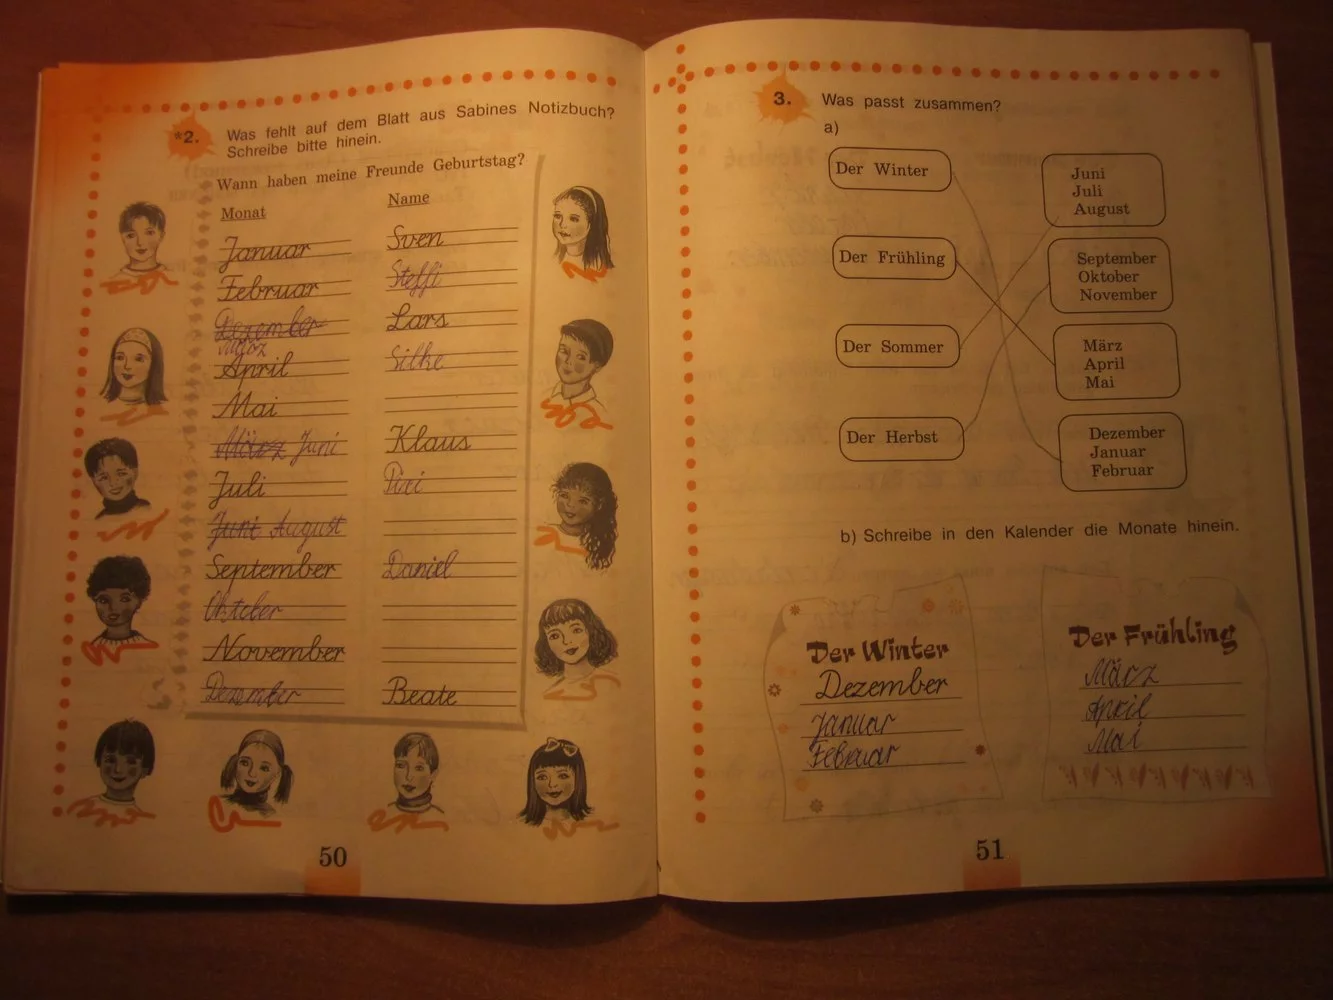 *2. Was fehlt auf dem Blatt aus Sabines Notizbuch?
Schreibe bitte hinein.
Wann haben meine Freunde Geburtstag?
Monat Name
Januar Sven
Februar Steffi
Dezember Lars
März
April Silke
Mai
März Juni Klaus
Juli Piri
Juni August
September Daniel
Oktober
November
Dezember Beate
50
3. Was passt zusammen?
a)
Der Winter
Juni
Juli
August
Der Frühling
September
Oktober
November
Der Sommer
März
April
Mai
Der Herbst
Dezember
Januar
Februar
b) Schreibe in den Kalender die Monate hinein.
Der Winter
Dezember
Januar
Februar
Der Frühling
März
April
Mai
51